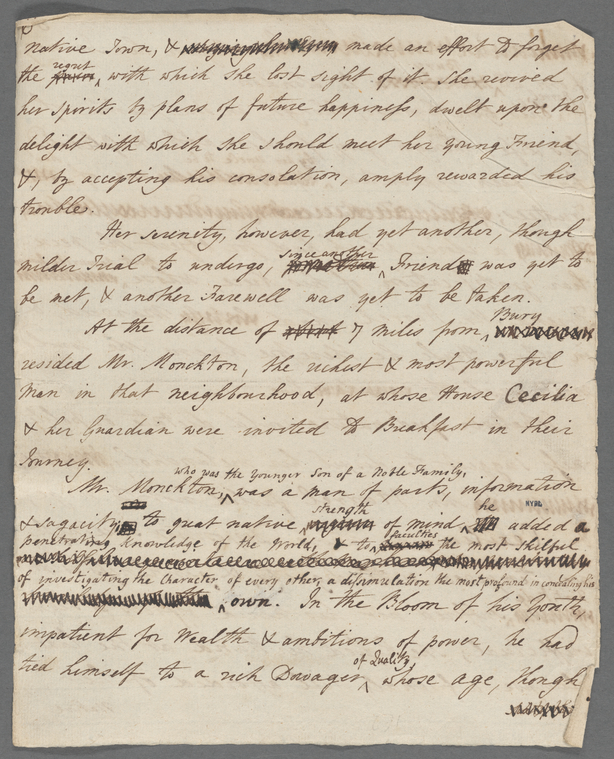 native Town, & made an effort to forget
regret
the , with which she lost sight of it. She revived
her spirits by plans of future happiness, dwelt upon the
delight with which she should meet her young Friend,
&, by accepting his consolation, amply rewarded his
trouble.
Her serenity, however, had yet another, though
since another
milder Trial to undergo, Friend was yet to
be met, & another Farewell was yet to be taken.
Bury
At the distance of 7 miles from,
resided Mr. Monckton, the richest & most powerful
man in that neighbourhood, at whose House Cecilia
& her Guardian were invited to Breakfast in their
Journey.
who was the Younger Son of a Noble Family,
Mr. Monckton, was a man of parts, information
strength he
& sagacity; to great native of mind, added a
penetrating Knowledge of the World, & to faculties the most skilful
of investigating the Character of every other, a dissimulation the most profound in concealing his
own. In the Bloom of his Youth,
impatient for Wealth & ambitious of power, he had
of Quality,
tied himself to a rich Dowager whose age, though